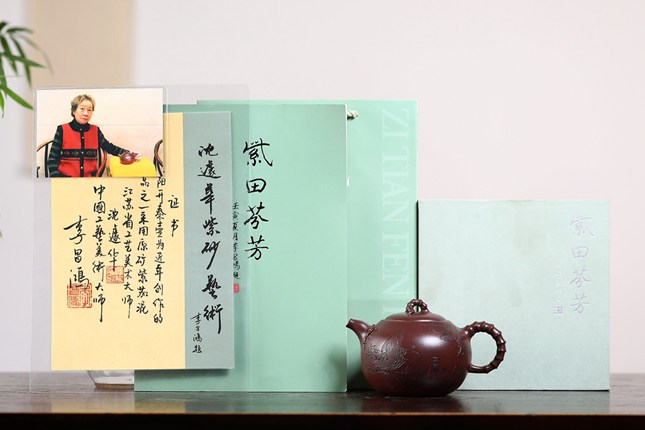 紫田芬芳
ZI TIAN FEN
紫田芬芳
沈遽华紫砂藝術
李昌鸿题
证书
阳开泰壶为近年创作的
品之一采用原矿紫茄泥
江苏省工艺美术大师
沈遽华
中國工艺美术大师
李昌鸿